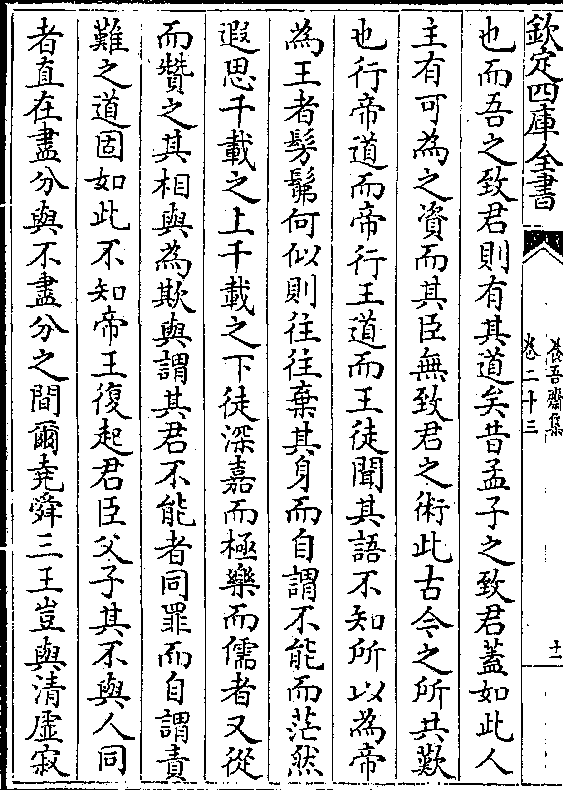 欽定四庫全書
養吾齋集
卷二十三
十一
也而吾之致君則有其道矣昔孟子之致君蓋如此人
主有可為之資而其臣無致君之術此古今之所共歎
也行帝道而帝行王道而王徒聞其語不知所以為帝
為王者髣髴何似則往往棄其身而自謂不能而茫然
遐思千載之上千載之下徒深嘉而極樂而儒者又從
而贊之其相與為欺與謂其君不能者同罪而自謂責
難之道固如此不知帝王復起君臣父子其不與人同
者直在盡分與不盡分之間爾堯舜三王豈與清虛寂